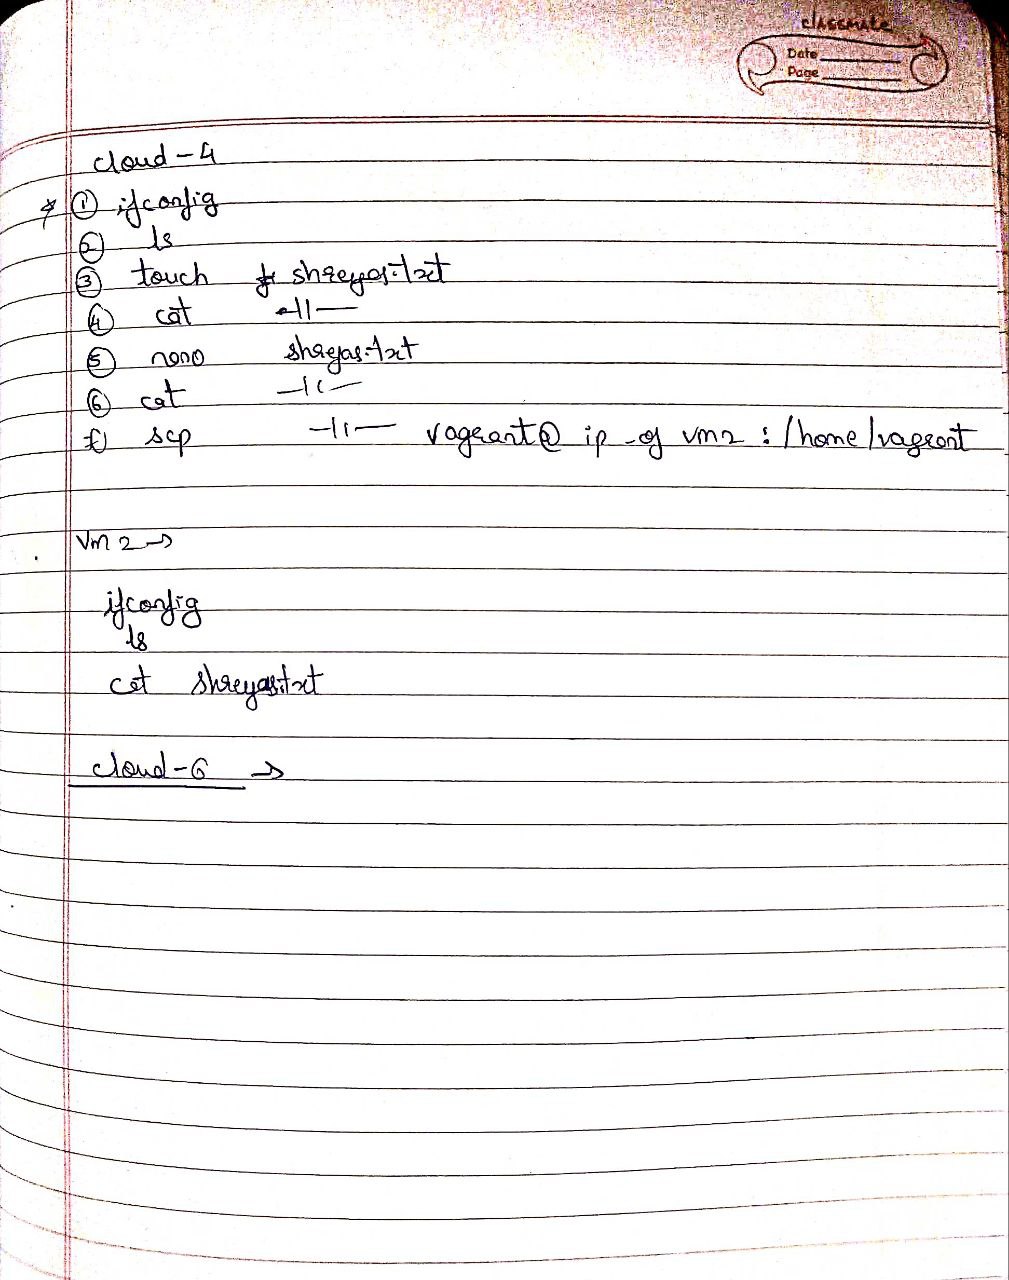 classmate
Date
Page
cloud-4
* ① ifconfig
② ls
③ touch shreyas.txt
④ cat -11-
⑤ nano shreyas.txt
⑥ cat -11-
7) scp -11- vagrant@ ip -of vm2 : /home/vagrant
Vm 2 →
ifconfig
ls
cat shreyas.txt
cloud-6 →